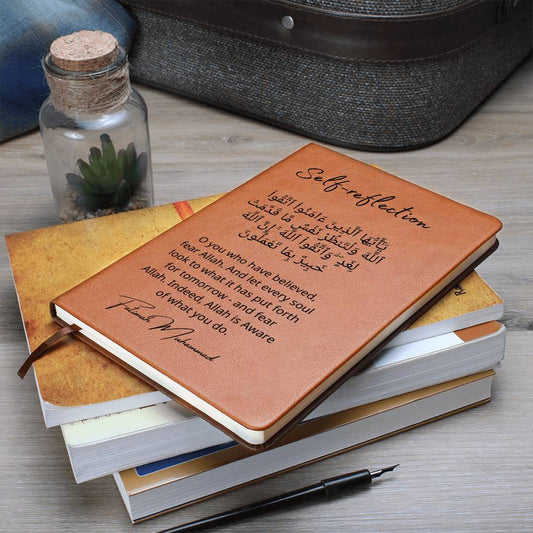 Self-reflection
يَٰأَيُّهَا ٱلَّذِينَ ءَامَنُوا۟ ٱتَّقُوا۟
ٱللَّهَ وَلْتَنظُرْ نَفْسٌ مَّا قَدَّمَتْ
لِغَدٍ وَٱتَّقُوا۟ ٱللَّهَ إِنَّ ٱللَّهَ
خَبِيرٌۢ بِمَا تَعْمَلُونَ
O you who have believed,
fear Allah. And let every soul
look to what it has put forth
for tomorrow - and fear
Allah. Indeed, Allah is Aware
of what you do.
Fatimah Muhammad